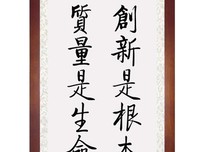 創新是根本
質量是生命